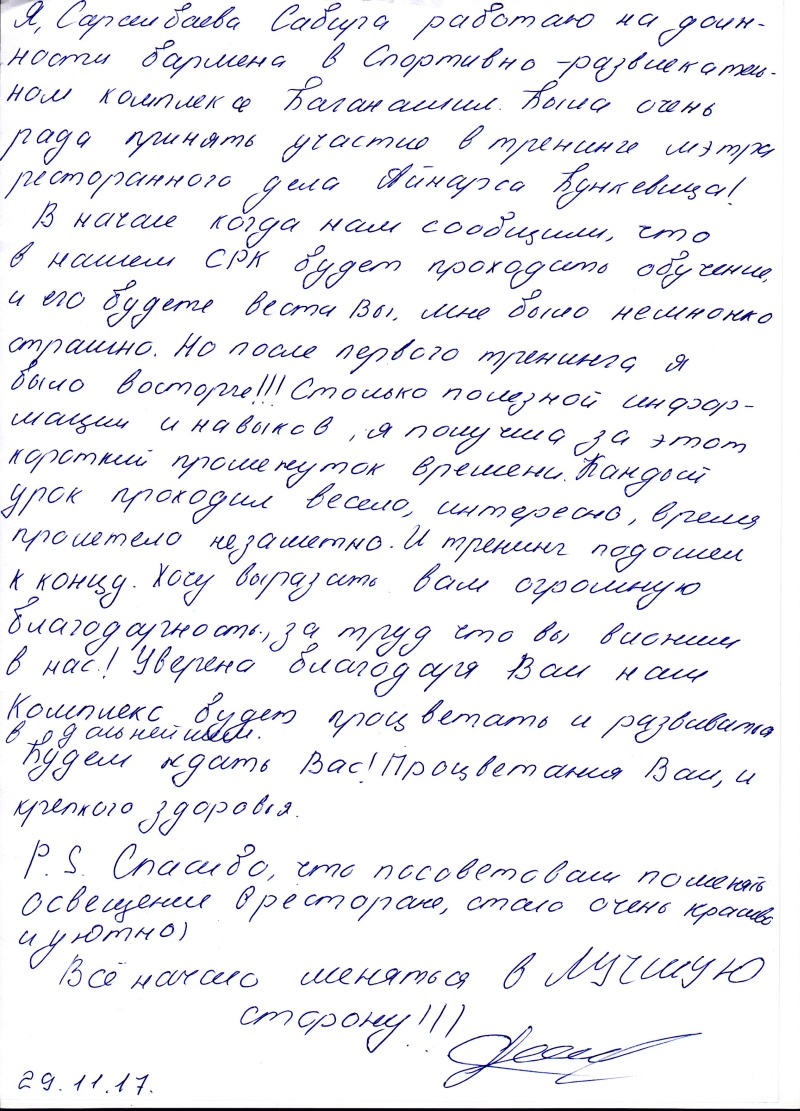 Я, Сарсенбаева Сабира работаю на долж-
ности бармена в Спортивно-развлекатель-
ном комплексе Баганашил. Была очень
рада принять участие в тренинге мэтра
ресторанного дела Айнарса Бункевица!
В начале когда нам сообщили, что
в нашем СРК будет проходить обучение,
и его будете вести Вы, мне было немножко
страшно. Но после первого тренинга я
было восторге!!! Столько полезной инфор-
мации и навыков, я получила за этот
короткий промежуток времени. Каждый
урок проходил весело, интересно, время
пролетело незаметно. И тренинг подошел
к концу. Хочу выразать вам огромную
благодарность, за труд что вы вложили
в нас! Уверена благодаря Вам наш
Комплекс будет процветать и развиваться
в дальнейшем.
Будем ждать Вас! Процветания Вам, и
крепкого здоровья.
P.S. Спасибо, что посоветовали поменять
освещение в ресторане, стало очень красиво
и уютно)
Всё начало меняться в ЛУЧШУЮ
сторону!!!
29.11.17.